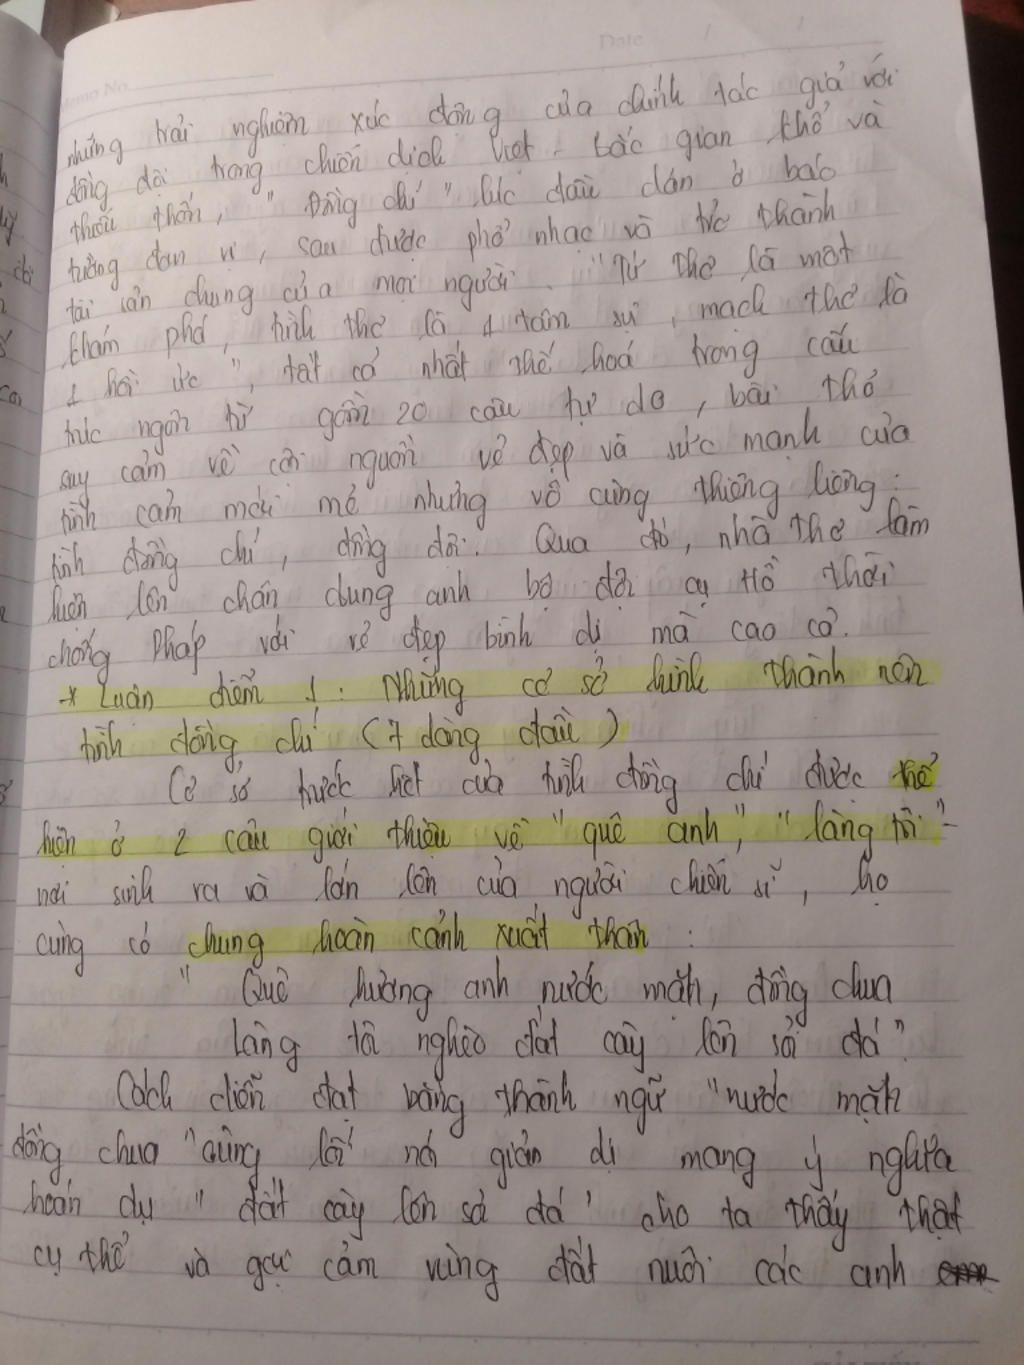 Memo No.
Date / /
những trải nghiệm xúc động của chính tác giả với
đồng đội trong chiến dịch Việt - Bắc gian khổ và
thiếu thốn, " Đồng chí " lúc đầu dán ở báo
tường đơn vị, sau được phổ nhạc và trở thành
tài sản chung của mọi người. "Tứ thơ là một
khám phá, hình thơ là 1 tâm sự, mạch thơ là
1 hồi ức ", tất cả nhất thể hoá trong cấu
trúc ngôn từ gồm 20 câu tự do, bài thơ
suy cảm về cội nguồn vẻ đẹp và sức mạnh của
tình cảm mới mẻ nhưng vô cùng thiêng liêng:
tình đồng chí, đồng đội. Qua đó, nhà thơ làm
hiện lên chân dung anh bộ đội cụ Hồ thời
chống Pháp với vẻ đẹp bình dị mà cao cả.
* Luận điểm 1: Những cơ sở hình thành nên
tình đồng chí (7 dòng đầu)
Cơ sở trước hết của tình đồng chí được thể
hiện ở 2 câu giới thiệu về " quê anh", " làng tôi " -
nơi sinh ra và lớn lên của người chiến sĩ, họ
cùng có chung hoàn cảnh xuất thân:
" Quê hương anh nước mặn, đồng chua
Làng tôi nghèo đất cày lên sỏi đá"
Cách diễn đạt bằng thành ngữ "nước mặn
đồng chua "cùng lối nói giản dị mang ý nghĩa
hoán dụ " đất cày lên sỏi đá" cho ta thấy thật
cụ thể và gợi cảm vùng đất nuôi các anh